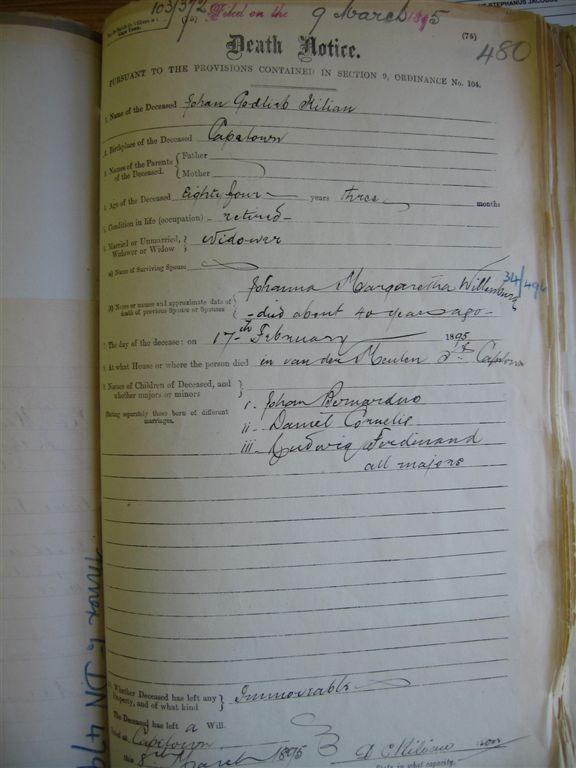 103/372
Filed on the 9 March 1895
Death Notice.
(75)
480
PURSUANT TO THE PROVISIONS CONTAINED IN SECTION 9, ORDINANCE No. 104.
1. Name of the Deceased Johan Godlieb Kilian
2. Birthplace of the Deceased Capetown
3. Names of the Parents of the Deceased. { Father
Mother
4. Age of the Deceased Eighty four years three months
5. Condition in life (occupation) - retired -
6. Married or Unmarried, Widower or Widow } Widower
(a) Name of Surviving Spouse
Johanna Margaretha Willenburg 34/494
(b) Name or names and approximate date of death of previous Spouse or Spouses } - died about 40 years ago -
7. The day of the decease: on 17th February 1895
8. At what House or where the person died in van der Meulen St. Capetown
9. Names of Children of Deceased, and whether majors or minors
(Stating separately those born of different marriages.
i. Johan Bernardus
ii - Daniel Cornelis
iii - Ludwig Ferdinand
all majors
10. Whether Deceased has left any Property, and of what kind } Immovable
The Deceased has left a Will.
Dated at Capetown,
this 8th March 1895
D C Kilian son
State in what capacity.
DN